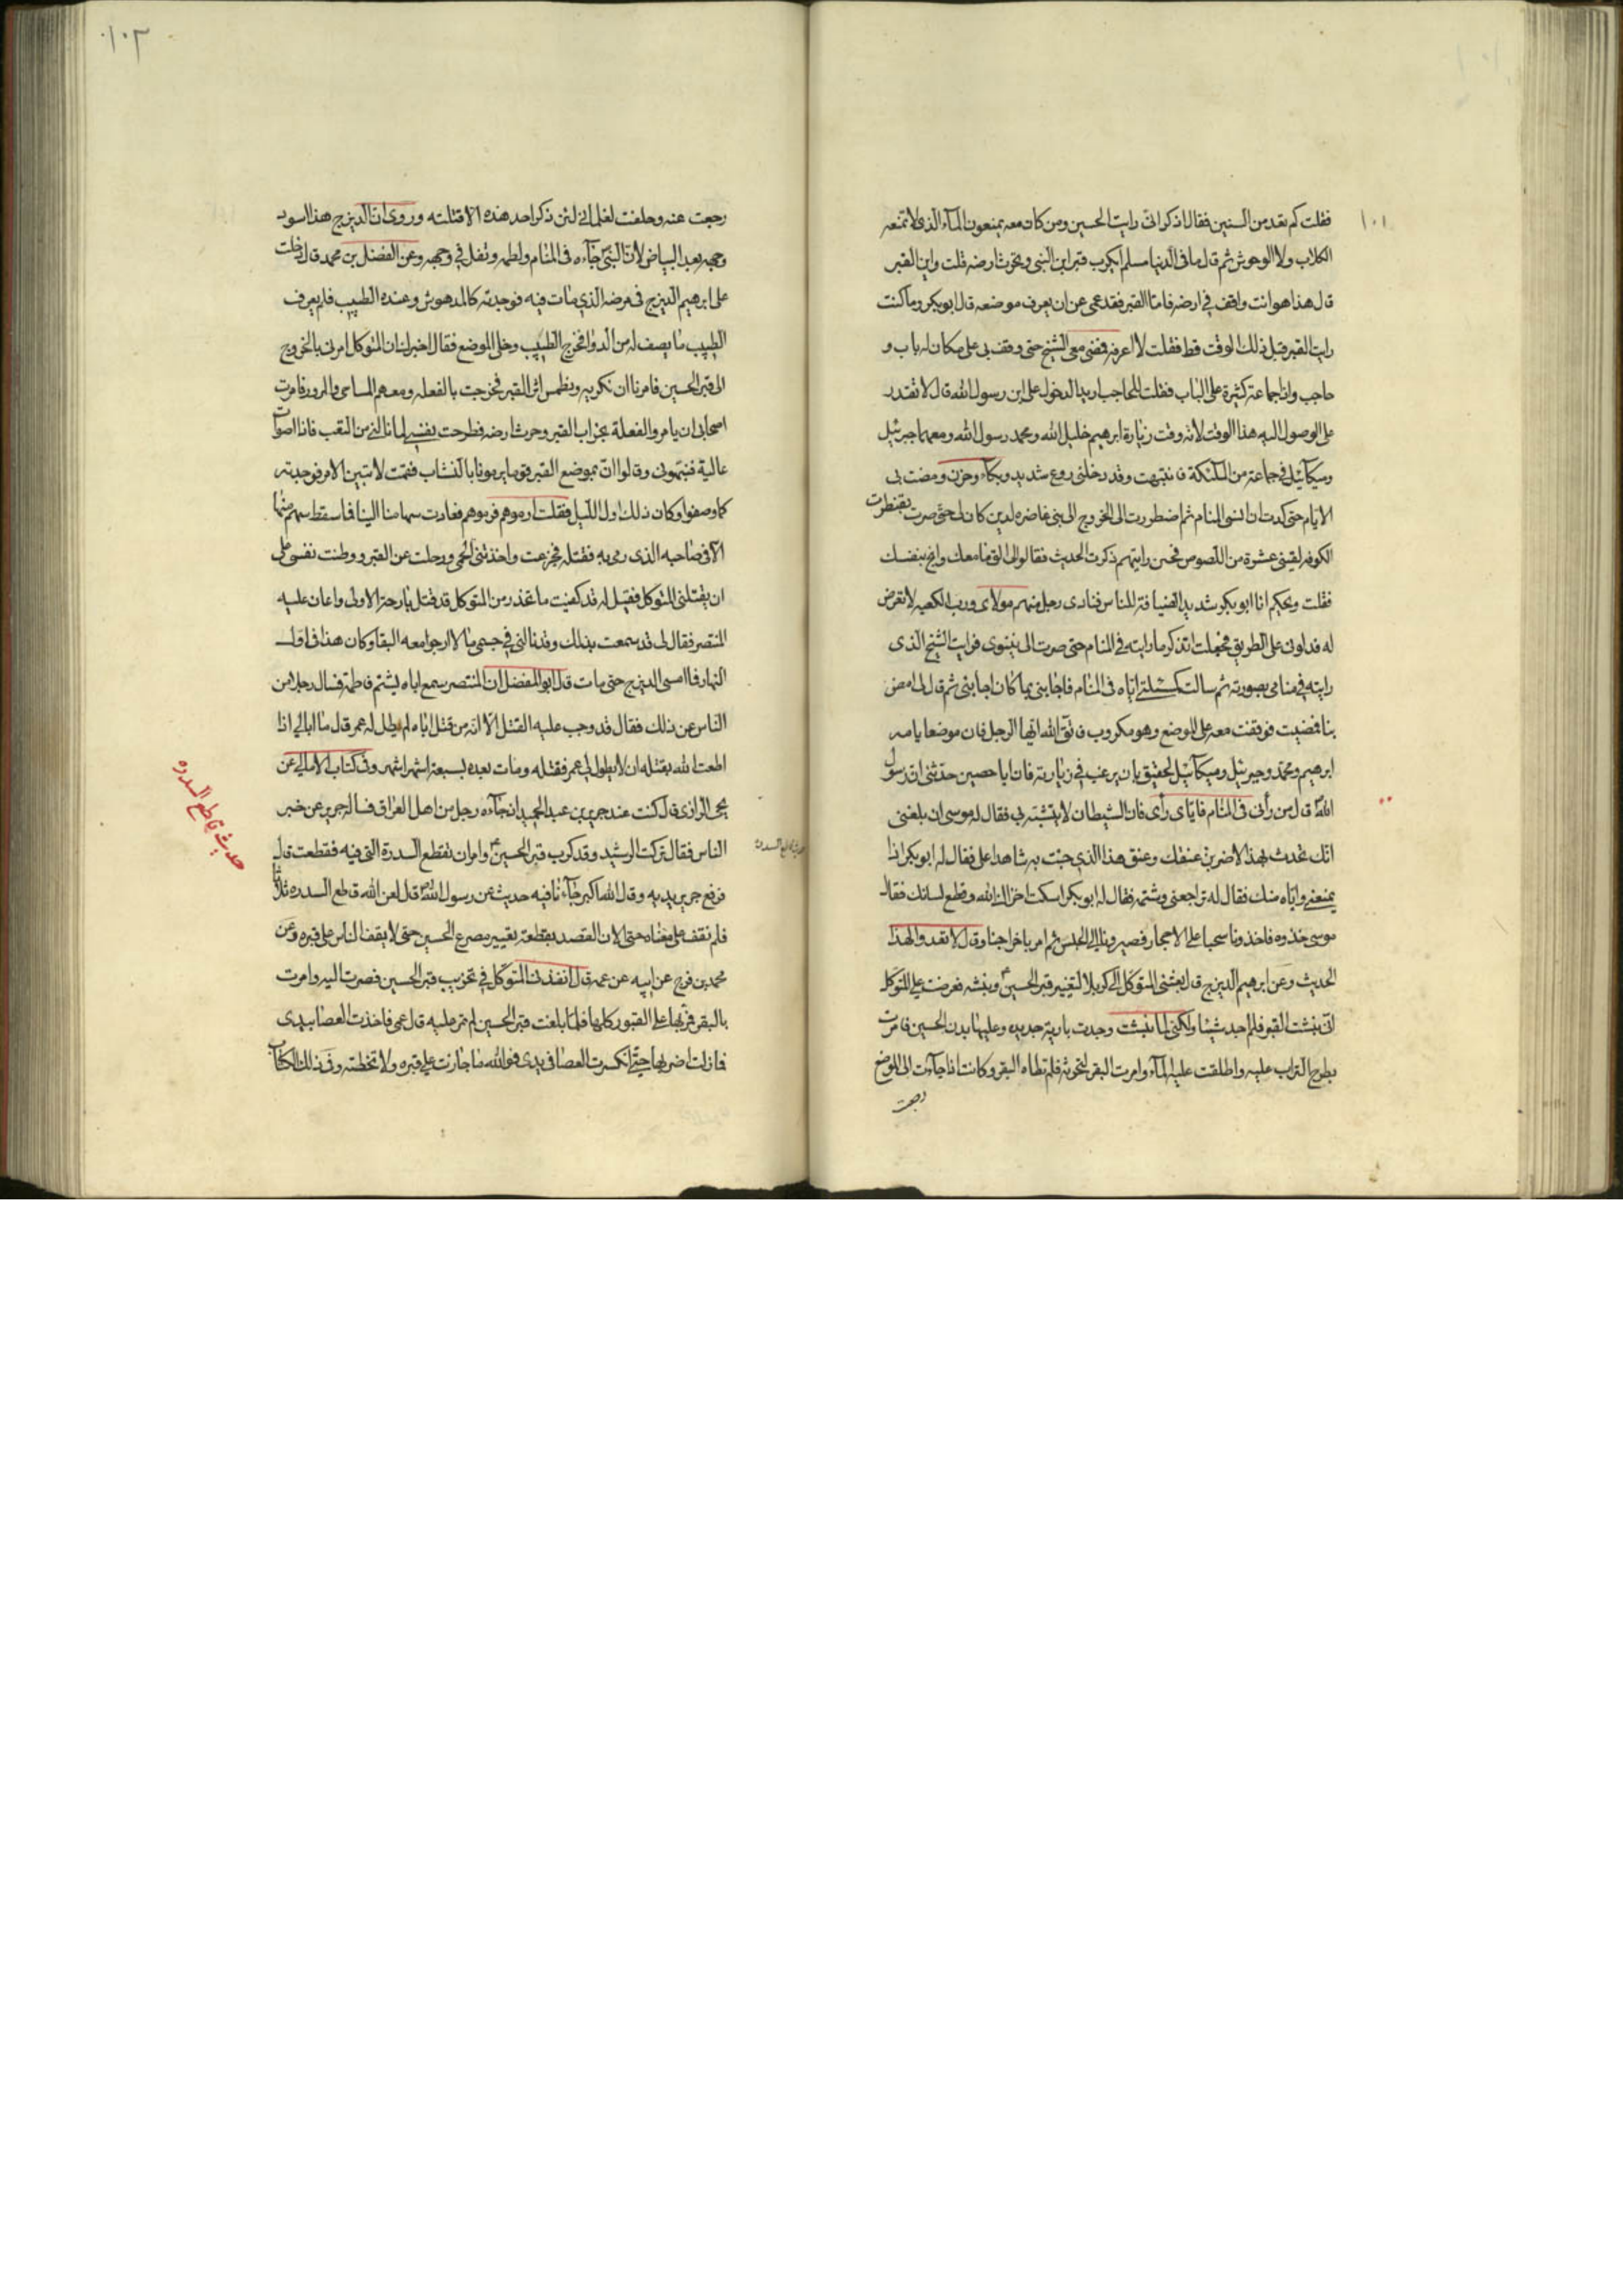 ١٠١
فقلت كم بعد من السنين فقال اذكر انى رايت الحسين ومن كان معه يمنعون الماء الذى لا تمنعه
الكلاب ولا الوحوش ثم قال ما فى الدنيا مسلم ايكرب قبر ابن النبى ويحرث ارضه قلت واين القبر
قال هذا هو انت واقف فى ارضه فاما القبر فقد عمى عن ان يعرف موضعه قال ابوبكر وما كنت
رايت القبر قبل ذلك الوقت قط فقلت لا اعرفه فمضى معى الشيخ حتى وقف بى على مكان له باب و
حاجب واذا جماعة كثيرة على الباب فقلت للحاجب اريد الدخول على ابن رسول الله قال لا تقدر
على الوصول اليه هذا الوقت لانه وقت زيارة ابرهيم خليل الله ومحمد رسول الله ومعهما جبرئيل
وميكائيل فى جماعة من الملئكة فانتبهت وقد دخلنى روع شديد وبكاء وحزن ومضت بى
الايام حتى كدت ان انسى المنام ثم اضطررت الى الخروج الى بنى غاضره لدين كان لى حتى صرت بقنطرات
الكوفه لقينى عشرة من اللصوص فحين رايتهم ذكرت الحديث فقالوا لى الق ما معك وانج بنفسك
فقلت ويحكم انا ابو بكر شديد الضيافة للناس فنادى رجل منهم مولاى ورب الكعبه لا تعرض
له فداونى على الطريق فجعلت اتذكر ما رايته فى المنام حتى صرت الى نينوى فرايت الشيخ الذى
رايته فى منامى بصورته ثم سالت كمسئلتى اياه فى المنام فاجابنى بما كان اجابنى ثم قال لى امض
بنا فمضيت فوقفت معه على الموضع وهو مكروب فاتق الله ايها الرجل فان موضعا يامه
ابرهيم ومحمد وجبرئيل وميكائيل لحقيق بان يرغب فى زيارته فان ابا حصين حدثنى ان رسول
الله قال من رآنى فى المنام فاياى راى فان الشيطان لا يتشبه بى فقال له موسى ان بلغنى
انك تحدث بهذا لاضربن عنقك وعنق هذا الذى جئت به شاهدا على فقال له ابو بكر اذا
يمنعنى واياه منك فقال له تراجعنى وشتمه فقال له ابو بكر اسكت اخزاك الله وقطع لسانك فقال
موسى خذوه فاخذونا سحبا على الاحجار فصيرونا الى الحبس ثم امر باخراجنا وقال لا تعد والهذا
الحديث وعن ابرهيم الديزج قال بعثنى المتوكل الى كربلا لتغيير قبر الحسين ونبشه فعرضت على المتوكل
انى نبشت القبر فلم اجد شيئا ولكنى لما نبشت وجدت بارية جديده وعليها بدن الحسين فامرت
بطرح التراب عليه واطلقت عليه الماء وامرت البقر لتحرثه فلم تطاه البقر وكانت اذا جاءت الى الموضع
رجعت
١٠٢
رجعت عنه وحلفت لغلمانى لئن ذكر احد هذه الا قتلته وروى ان الديزج هذا اسود
وجهه بعد البياض لان النبى جاءه فى المنام ولطمه وتفل فى وجهه وعن الفضل بن محمد قال دخلت
على ابرهيم الديزج فى مرضه الذى مات فيه فوجدته كالمدهوش وعنده الطبيب فلم يعرف
الطبيب ما يصف له من الدواء فخرج الطبيب وخلى الموضع فقال اخبرك ان المتوكل امرنى بالخروج
الى قبر الحسين فامرنا ان نكربه ونطمس اثر القبر فخرجت بالفعله ومعهم المساحى والمرور فامرت
اصحابى ان يامروا الفعلة بخراب القبر وحرث ارضه فطرحت بنفسى لما نالنى من التعب فاذا اصوات
عالية فنبهونى وقالوا ان بموضع القبر قوما يرمونا بالنشاب فقمت لاتبين الامر فوجدته
كما وصفوا وكان ذلك اول الليل فقلت ارموهم فرموهم فعادت سهامنا الينا فما سقط سهم منها
الا فى صاحبه الذى رمى به فقتله فجزعت واخذتنى الحمى ورحلت عن القبر ووطنت نفسى على
ان يقتلنى المتوكل فقيل له قد كفيت ما تحذر من المتوكل قد قتل بارحة الاولى واعان عليه
المنتصر فقال لى قد سمعت بذلك وقد نالنى فى جسمى ما لا ارجو معه البقا وكان هذا فى اول
النهار فما امسى الديزج حتى مات قال ابو المفضل ان المنتصر سمع اباه يشتم فاطمة فسال رجلا من
الناس عن ذلك فقال قد وجب عليه القتل الا انه من قتل اباه لم يطل له عمر قال ما ابالى اذا
اطعت الله بقتله ان لا يطول لى عمر فقتله ومات بعده لسبعة اشهر اشهر وفى كتاب الامالى عن
يحيى الرازى قال كنت عند جرير بن عبد الحميد اذ جاءه رجل من اهل العراق فساله جرير عن خبر
الناس فقال تركت الرشيد وقد كرب قبر الحسين وامر ان تقطع السدرة التى فيه فقطعت قال
فرفع جرير يديه وقال الله اكبر جاءنا فيه حديث عن رسول الله قال لعن الله قاطع السدره ثلاثا
فلم نقف على معناه حتى الان القصد بقطعه تغيير مصرع الحسين حتى لا يقف الناس على قبره وعن
محمد بن فرج عن ابيه عن عمه قال انفذنى المتوكل فى تخريب قبر الحسين فصرت اليه وامرت
بالبقر فمر بها على القبور كلها فلما بلغت قبر الحسين لم تمر عليه قال عمى فاخذت العصا بيدى
فما زلت اضربها حتى انكسرت العصا فى يدى فوالله ما جازت على قبره ولا تخطته وفى ذلك الكتاب
حديث قاطع السدره
حديث قاطع السدره